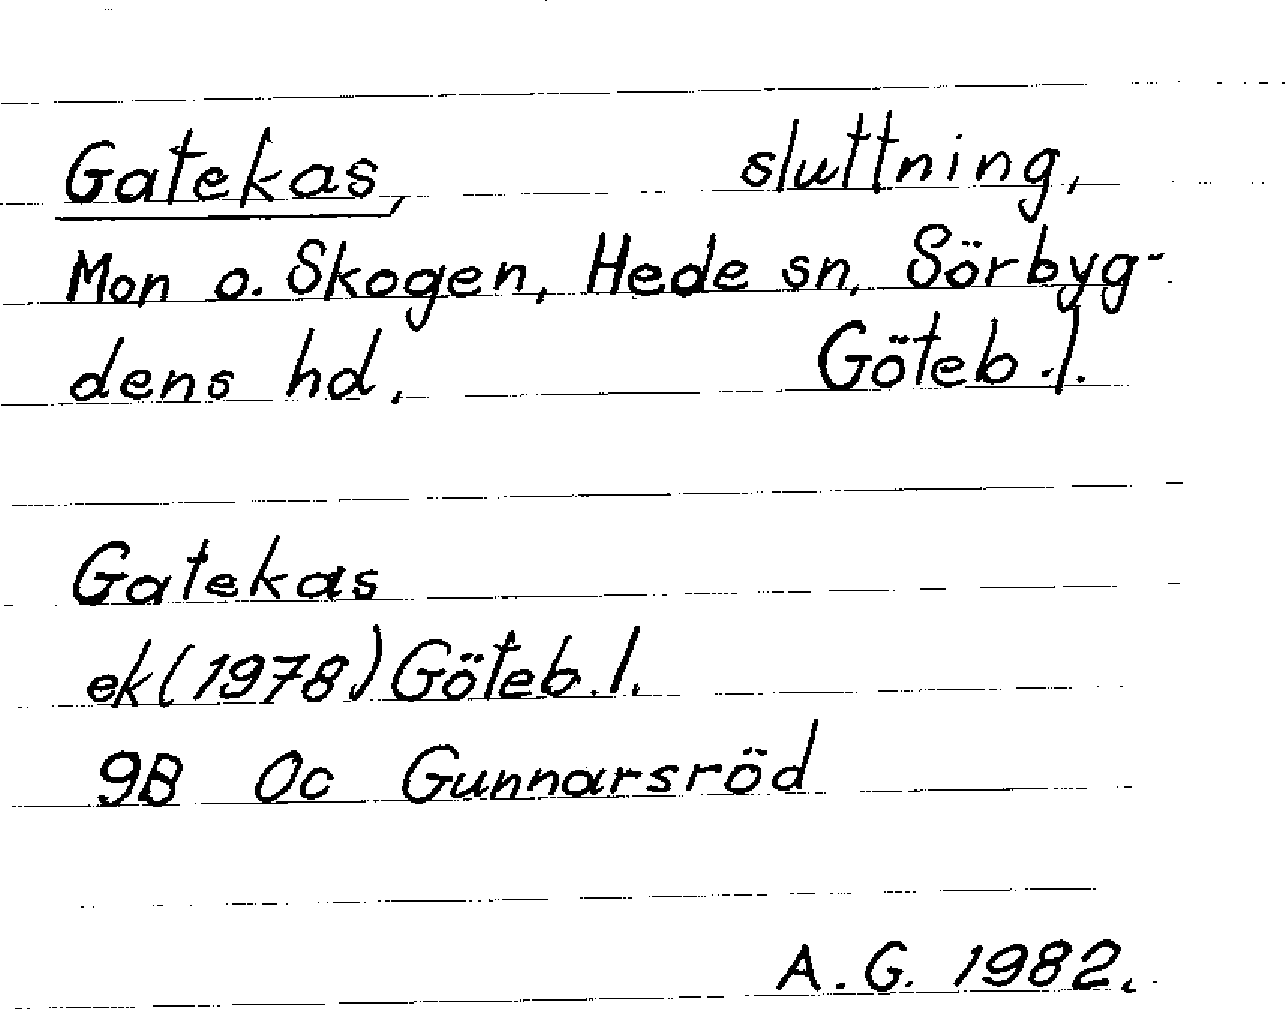 Gatekas, sluttning,
Mon o. Skogen, Hede sn, Sörbyg-
dens hd. Göteb.l.
Gatekas
ek(1978) Göteb.l.
9B 0c Gunnarsröd
A.G. 1982.